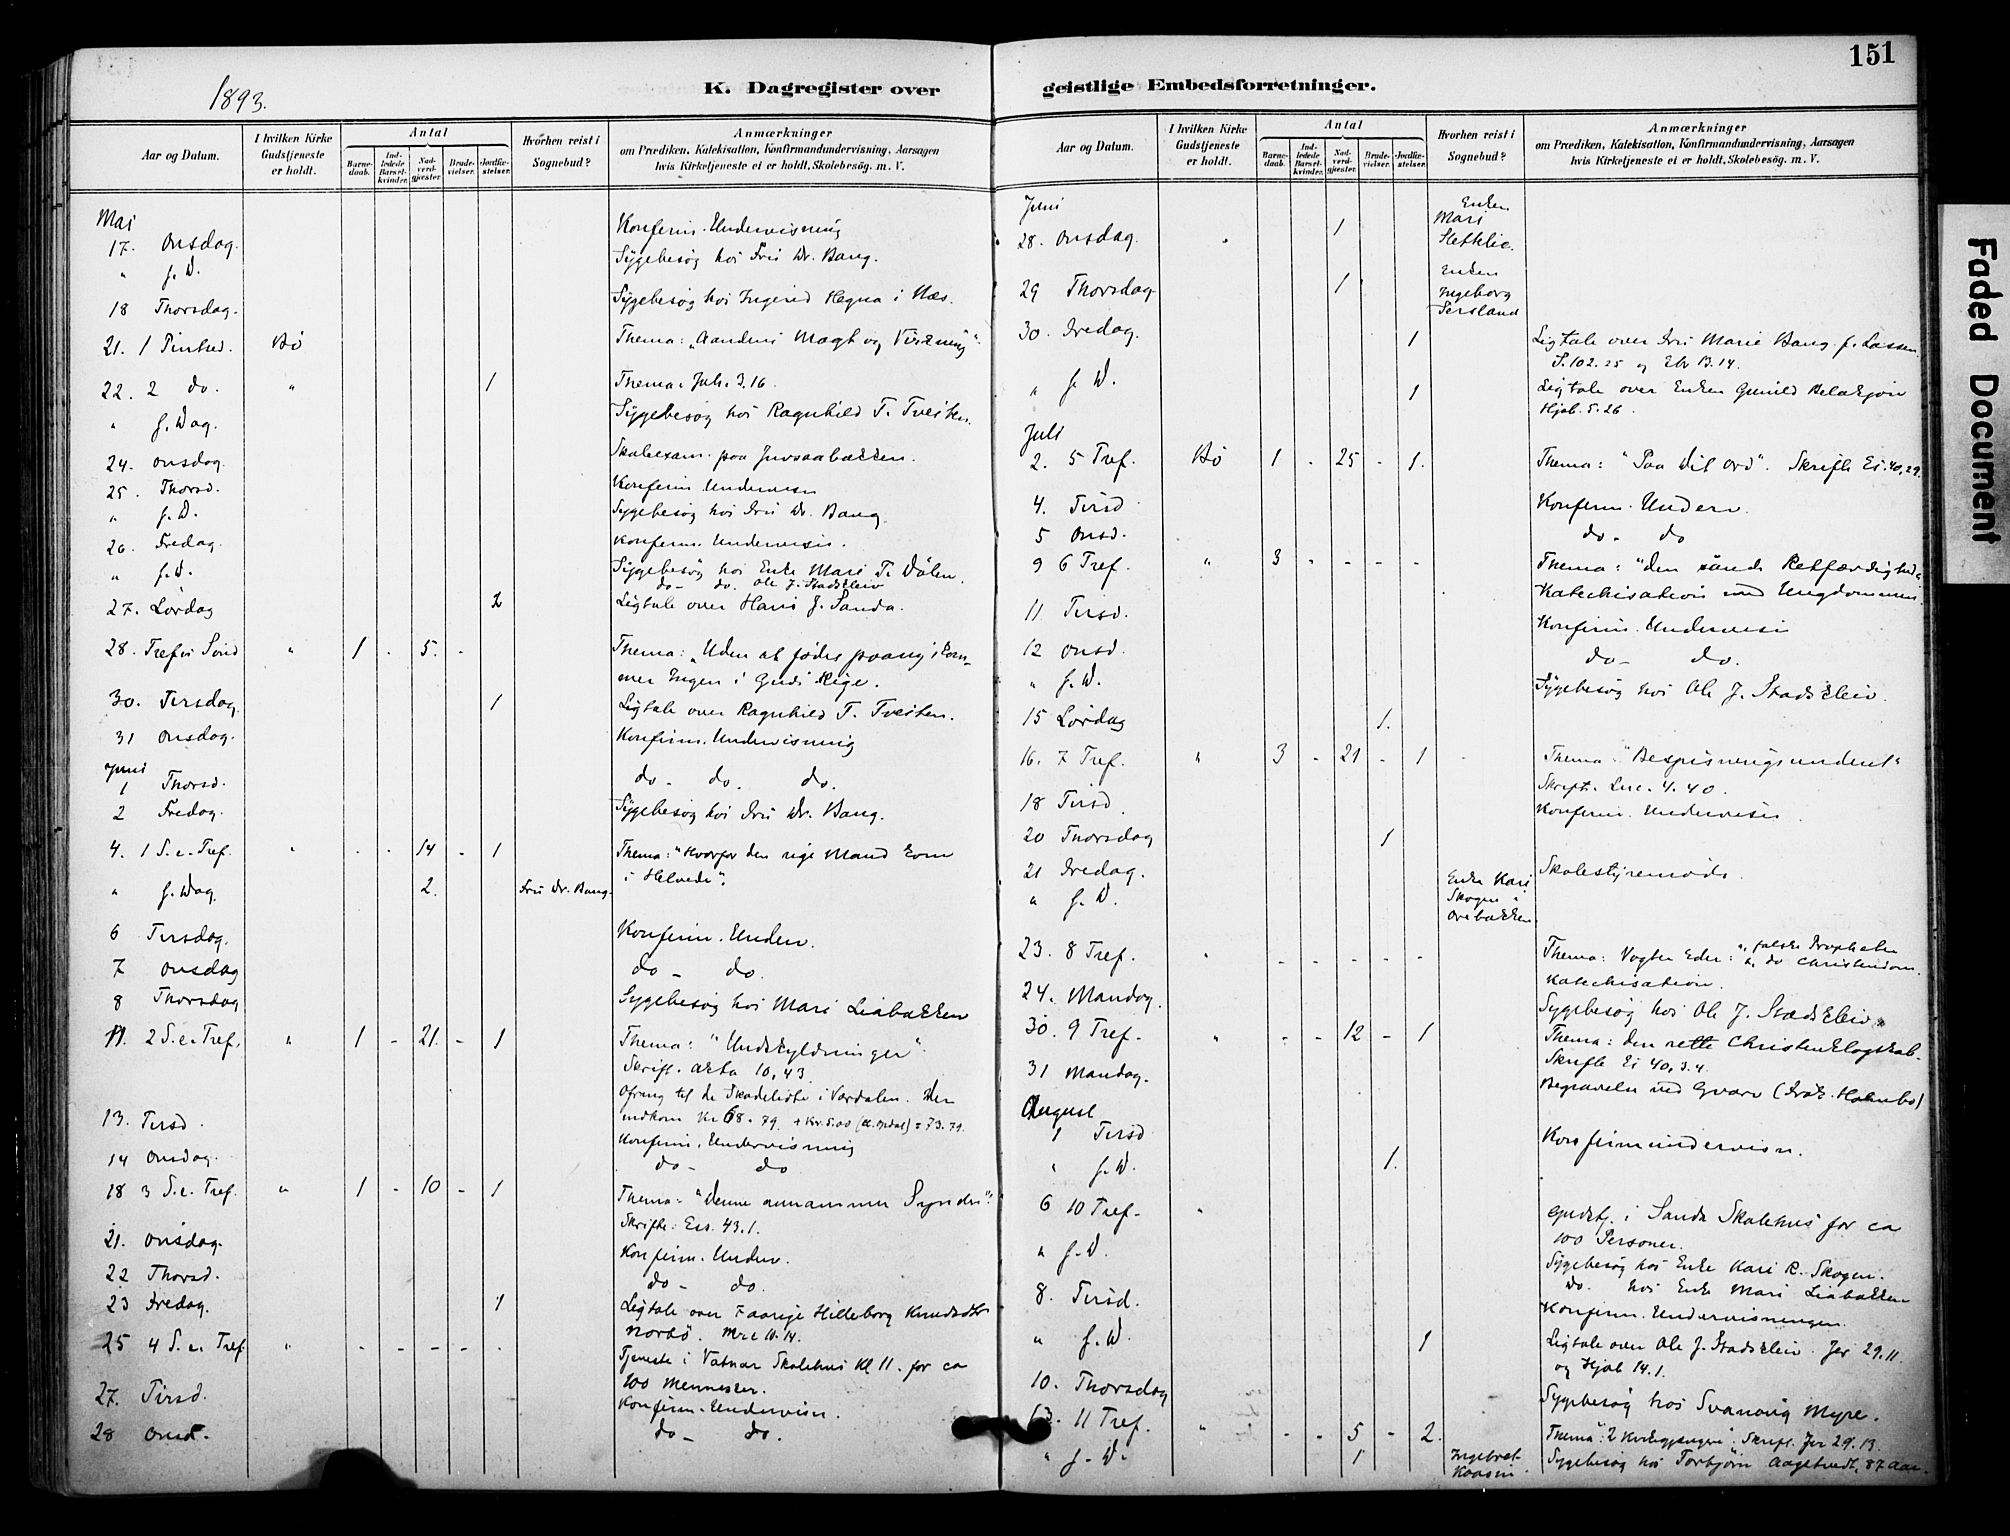 151
1893.
K. Dagregister over geistlige Embedsforretninger.
Aar og Datum. I hvilken Kirke Gudstjeneste er holdt. Antal Barnedaab. Indledede Barselkvinder. Nadverdgjester. Brudevielser. Jordfæstelser. Hvorhen reist i Sognebud? Anmærkninger om Prædiken, Katekisation, Konfirmandundervisning, Aarsagen hvis Kirketjeneste ei er holdt, Skolebesög. m. V.
Mai
17. Onsdag. Konfirm. Undervisning
" s. D. Sygebesøg hos Fru Dr. Bang.
18 Thorsdag. Sygebesøg hos Ingerid Hegna i Næs.
21. 1 Pintsed. Bø Thema: "Aandens Magt og Virkning".
22. 2 do. " 1 Thema. Joh. 3.16.
" s. Dag. Sygebesøg hos Ragnhild T. Tveiten.
24. Onsdag. Skoleexam. paa
25. Thorsd. Konfirm. Undervisn
" s. D. Sygebesøg hos Fru Dr. Bang.
26. Fredag. Konfirm. Undervisn.
" s. D. Sygebesøg hos Enke Mari T. Dølen.
do- do. Ole J. Stadskleiv
27. Lørdag 2 Ligtale over Hans J. Sanda.
28. Trefs Sønd " 1 - 5. - Thema: "Uden at fødes paany, kom-
mer Ingen i Guds Rige.
30. Tirsdag. 1 Ligtale over Ragnhild T. Tveiten.
31 Onsdag. Konfirm. Undervisning
Juni
1 Thorsd. do- do. do.
2 Fredag. Sygebesøg hos Fru Dr. Bang.
4. 1 S. e. Tref. " - - 14 - 1 Thema: "Hvorfor den rige Mand kom
i Helvede".
" s. Dag. 2. Fru Dr. Bang.
6 Tirsdag. Konfirm. Underv.
7 Onsdag do - do.
8 Thorsdag Sygebesøg hos Mari Liabakken
11. 2 S. e. Tref. " 1 - 21. - 1 Thema: "Undskyldninger".
Skrift. Acta 10, 43.
Ofring til de Skadelidte i Værdalen. Der
indkom Kr. 68.79. + Kr. 5.00 = 73.79.
13. Tirsd. Konfirm. Undervisning
14 Onsdag. do- do
18 3 S. e. Tref. " 1 - 10 - 1 Thema: "Denne annammer Syndere".
Skrifte: Es. 43.1.
21. Onsdag. Konfirm. Underv.
22 Thorsd. do- do.
23 Fredag. 1 Ligtale over 7 aarige Hilleborg Knudsdtr
Norbø. Mrc 10.14.
25 4 S. e. Tref. " - - - - - Tjeneste i Vatnar Skolehus Kl 11. for ca
100 Mennesker.
27. Tirsd. Konfirm. Undervisn.
28 Onsd. do- do.
Aar og Datum. I hvilken Kirke Gudstjeneste er holdt. Antal Barnedaab. Indledede Barselkvinder. Nadverdgjester. Brudevielser. Jordfæstelser. Hvorhen reist i Sognebud? Anmærkninger om Prædiken, Katekisation, Konfirmandundervisning, Aarsagen hvis Kirketjeneste ei er holdt, Skolebesög. m. V.
Juni
28. Onsdag. " 1 Enken Mari
29 Thorsdag 1 Enken Ingeborg
30. Fredag. 1 Ligtale over Fru Marie Bang f. Lassen.
S. 102.25 og Ebr 13.14.
" s. D. 1 Ligtale over Enken Gunild
Hjob. 5.26.
Juli
2. 5 Tref. Bø 1 - 25 - 1. Thema: "Paa Dit Ord". Skrifte Es. 40,29.
4. Tirsd Konfirm. Underv.
5 Onsd. do- do
9 6 Tref. " 3 - - - - Thema: "Den sande Retfærdighed".
Katechisation med Ungdommen.
11 Tirsd. Konfirm. Undervisn
12 Onsd. do- do.
" s. D. Sygebesøg hos Ole J. Stadskleiv.
15 Lørdag 1.
16. 7 Tref. " 3 - 21 - 1 Thema "Bespisningsunderet"
Skrift. Luc. 4.40.
18 Tirsd. Konfirm. Undervisn
20 Thorsdag 1
21 Fredag. Skolestyremøde.
" s. D. Enke Kari Skogen i
23. 8 Tref. " - - - - - Thema: Vogter Eder: a, falske Propheter
b, do Christendom.
Katechisation.
24. Mandag. Sygebesøg hos Ole J. Stadskleiv
30. 9 Tref. " - - 12 - 1 Thema: Den rette Christenklogskab.
Skrifte Es 40, 3.4.
31 Mandag. Begravelse ved Gvarv
August
1 Tirsd Konfirmundervisn.
" s. D. 1.
6 10 Tref. " Gudstj. i Sanda Skolehus for ca
100 Personer.
" s. D. Sygebesøg hos Enke Kari R. Skogen.
do. hos Enke Mari Liabakken
8. Tirsd. Konfirm. Undervisningen.
" s. D. 1 Ligtale over Ole J. Stadskleiv. Jer 29.11.
og Hjob 14.1.
10. Thorsdag Sygebesøg hos Svanaug Myre.
13. 11 Tref. " - - 5 - 2. Thema: "2 Kirkegjængere". Skrift. Jer 29.13.
" s. D. 1 Ingebret Sygebesøg hos Torbjørn Aagetvedt, 87 Aar.
Faded Document